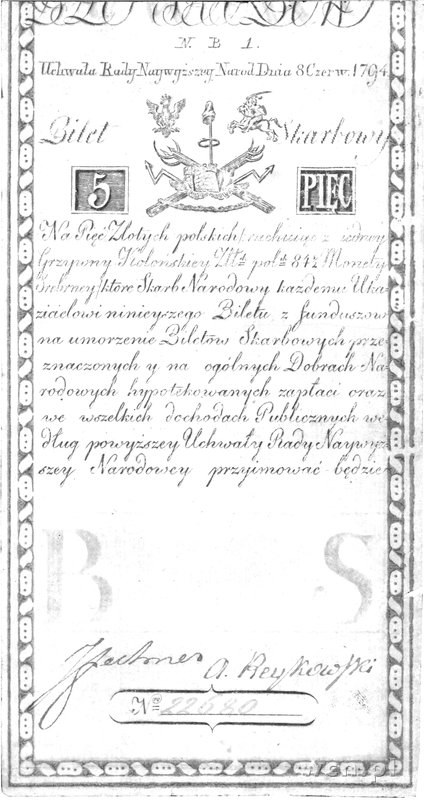 N. B 1.
Uchwała Rady Naywyższey Narod. Dnia 8 Czerw. 1794.
Bilet Skarbowy
5 PIĘĆ
Na Pięć Złotych polskich, rachuiąc z
Grzywny Kolońskiey Zł. pol. 84½ Monety
Srebrney, które Skarb Narodowy każdemu Uka
zicielowi ninieyszego Biletu z funduszow
na umorzenie Biletów Skarbowych prze
znaczonych y na ogólnych Dobrach Na
rodowych hypotekowanych zapłaci oraz
we wszelkich dochodach Publicznych we
dług powyższey Uchwały Rady Naywyż
szey Narodowey przyimować będzie
B S
A. Reykowski
No 22680